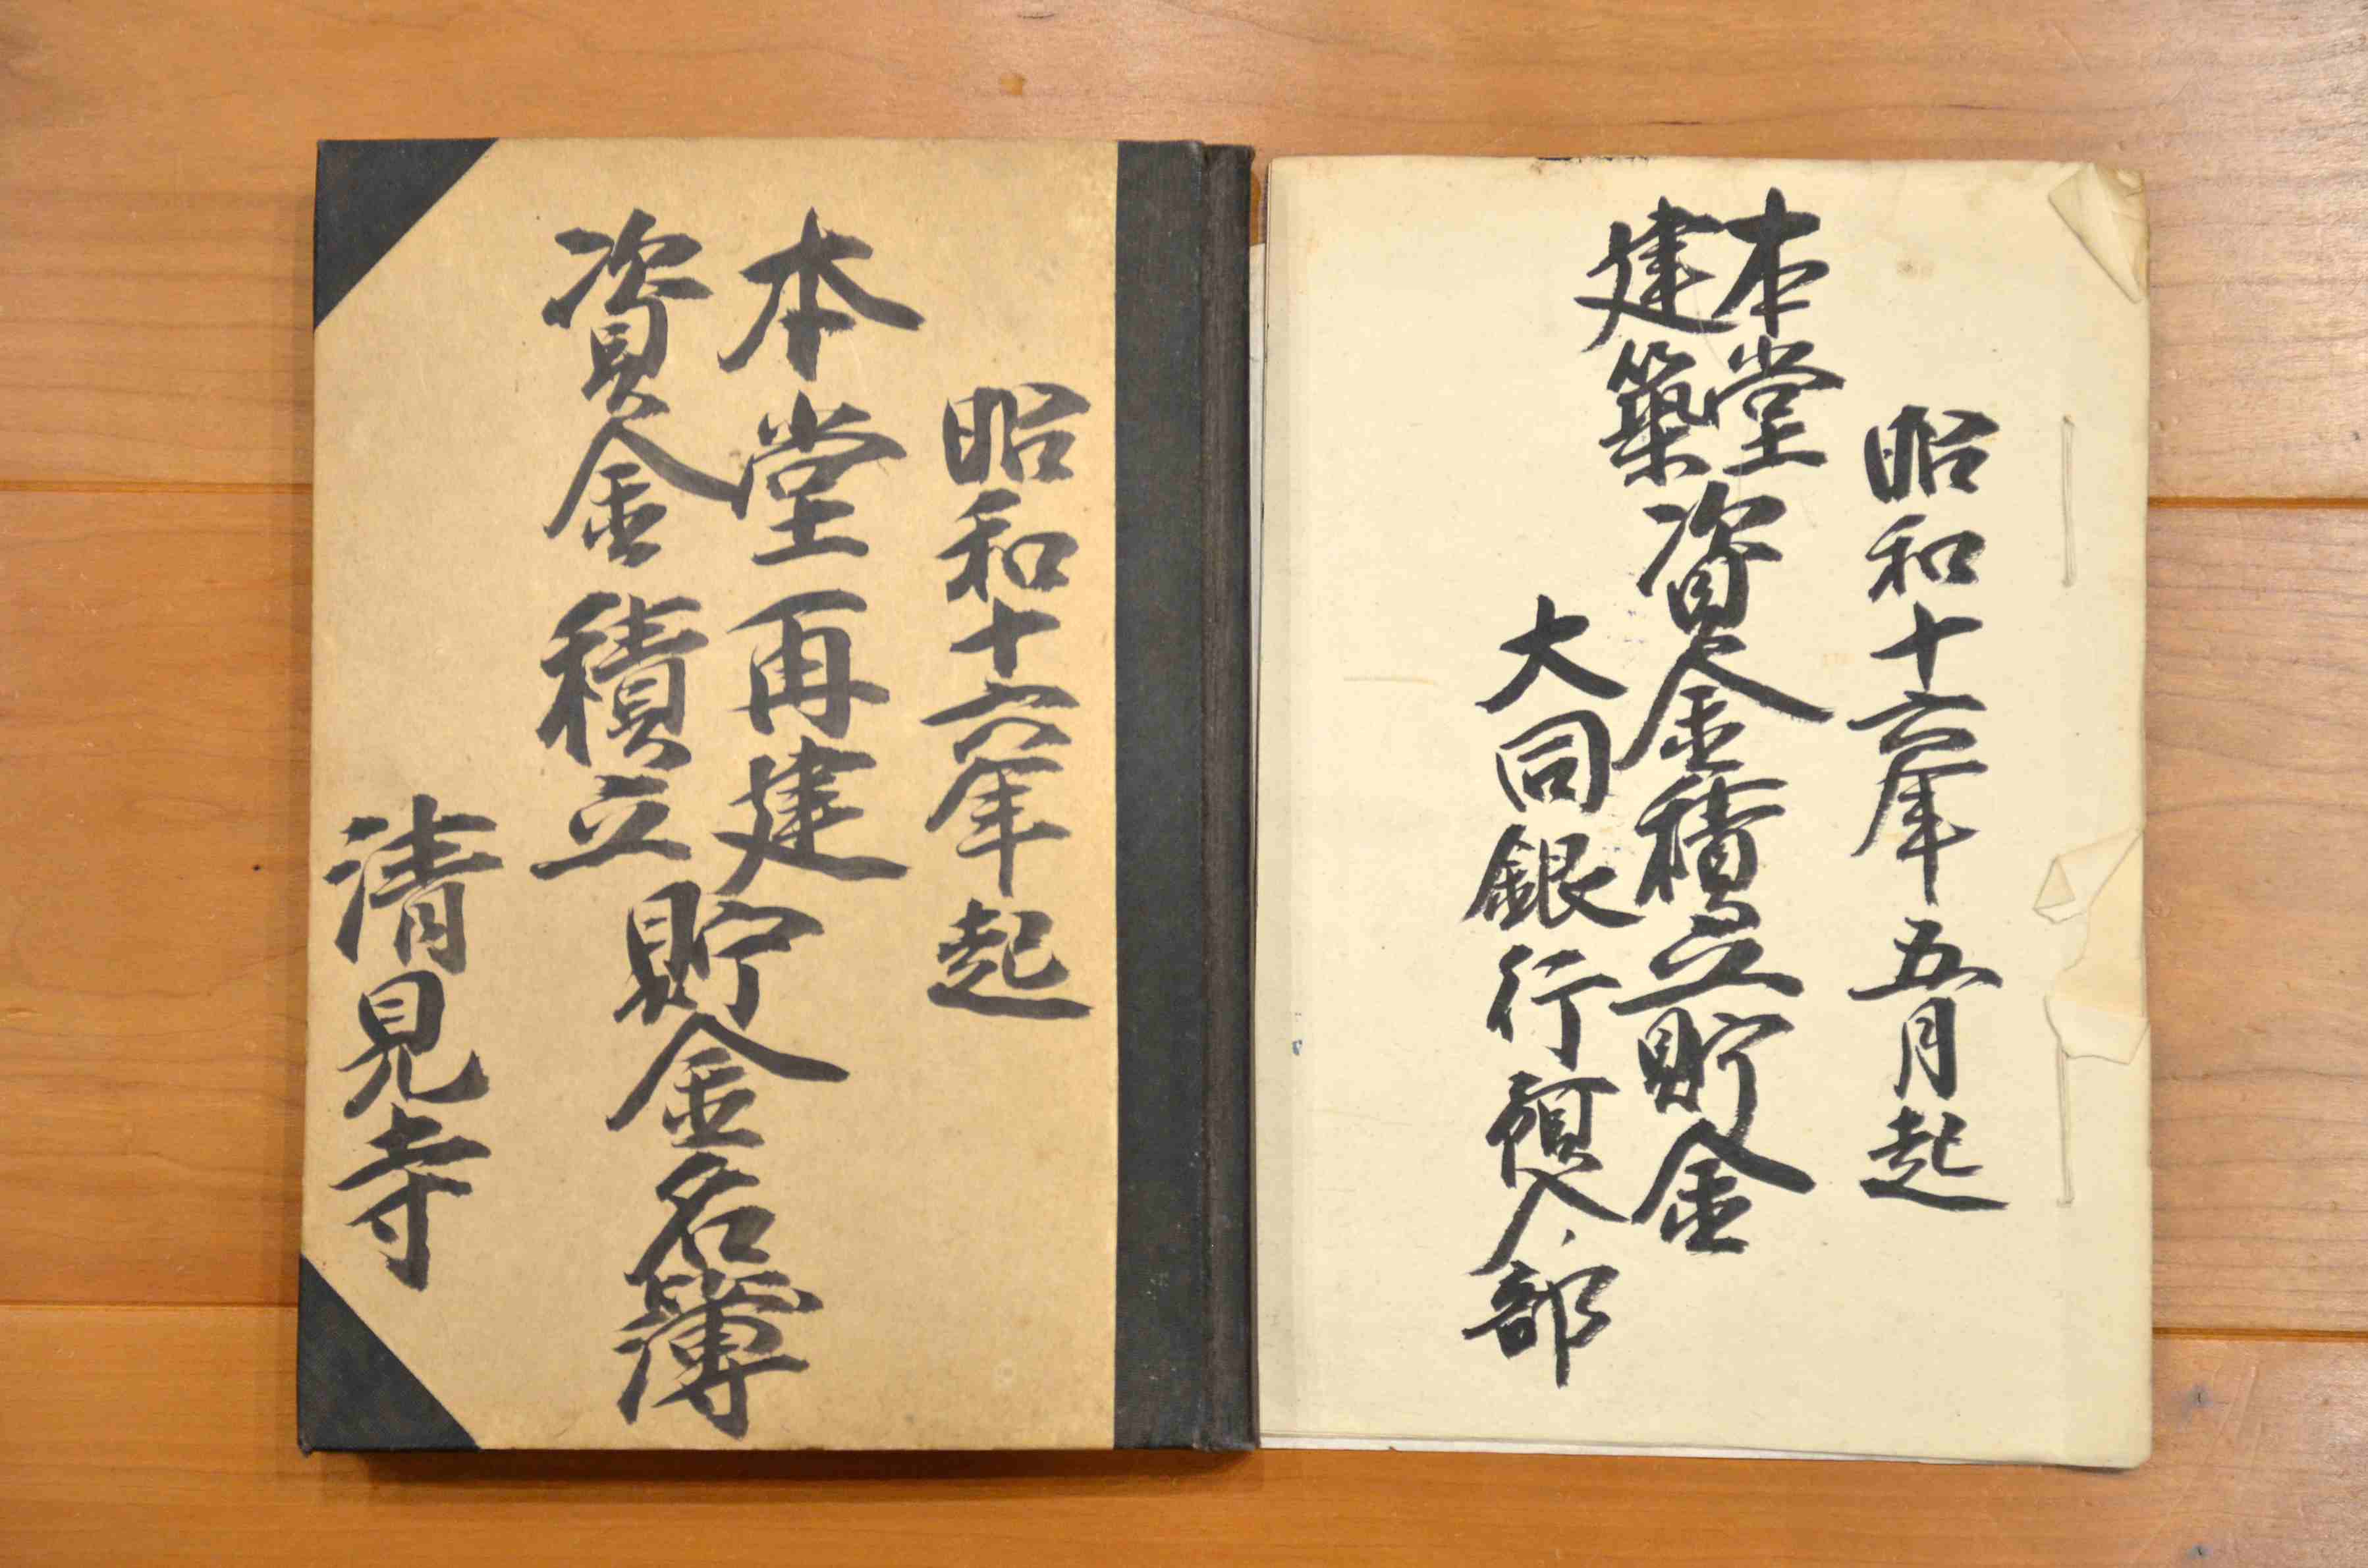 昭和十六年五月起
本堂
建築
資金積立貯金
大同銀行預入部
昭和十六年起
本堂再建
資金積立
貯金名簿
清見寺